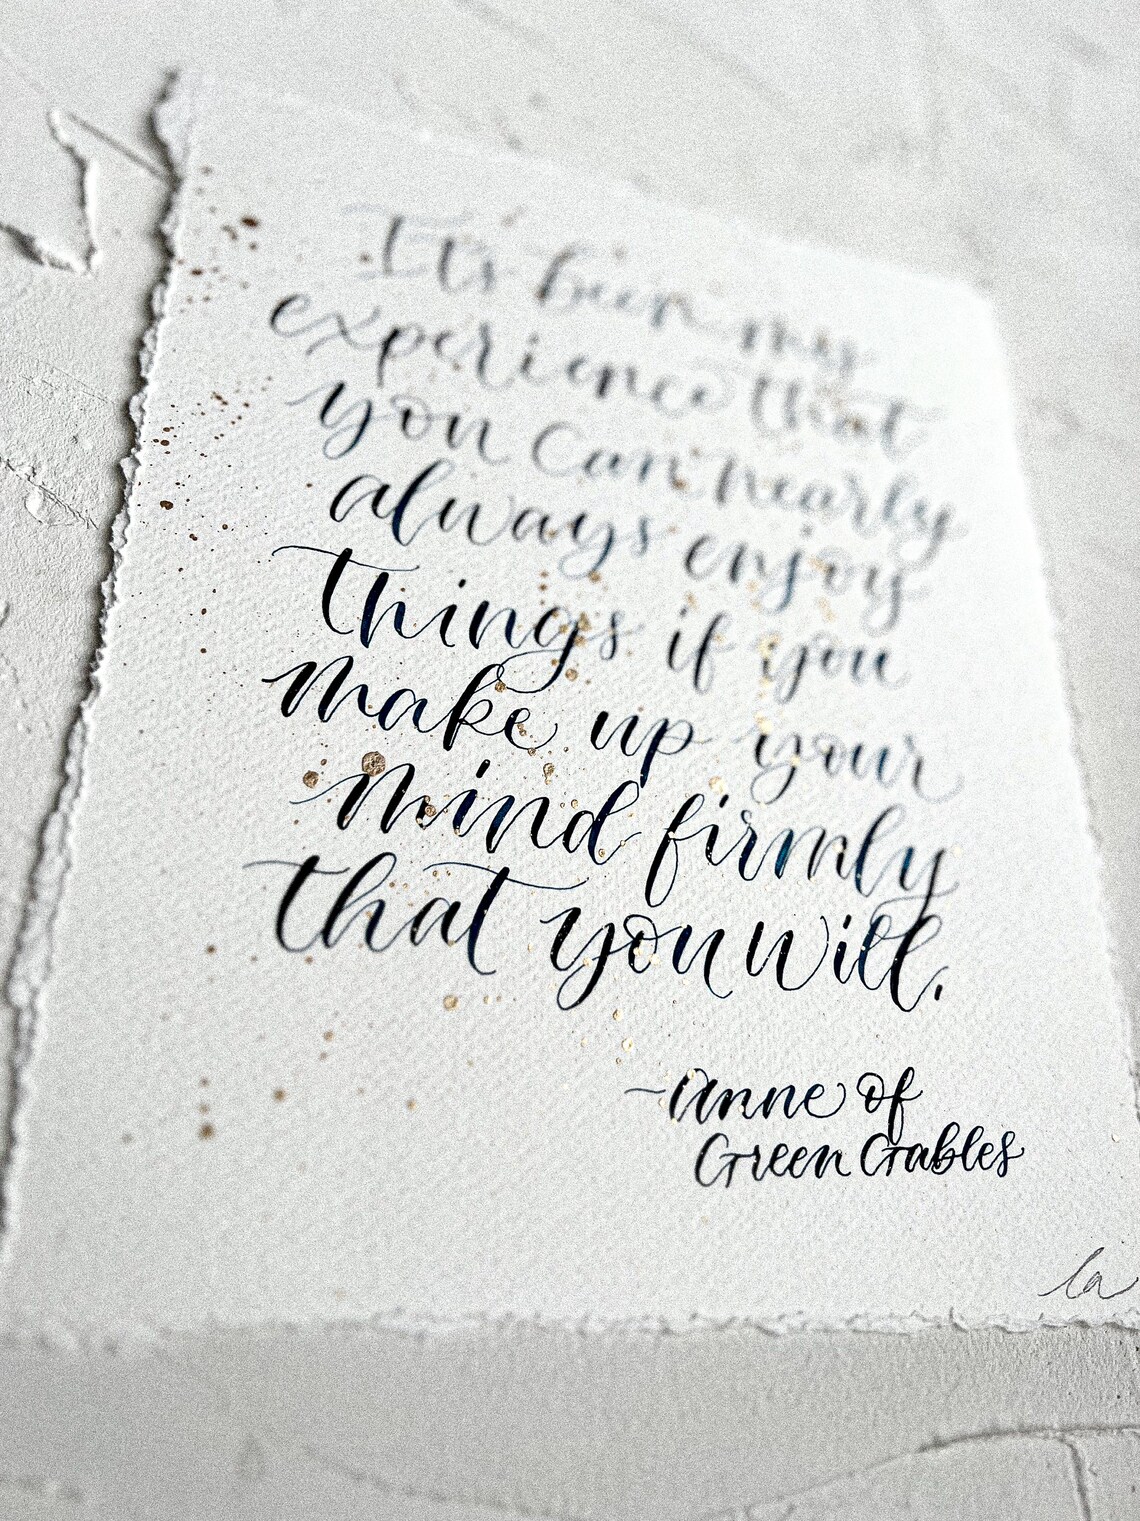 It's been my
experience that
you can nearly
always enjoy
things if you
make up your
mind firmly
that you will.
~Anne of
Green Gables
la